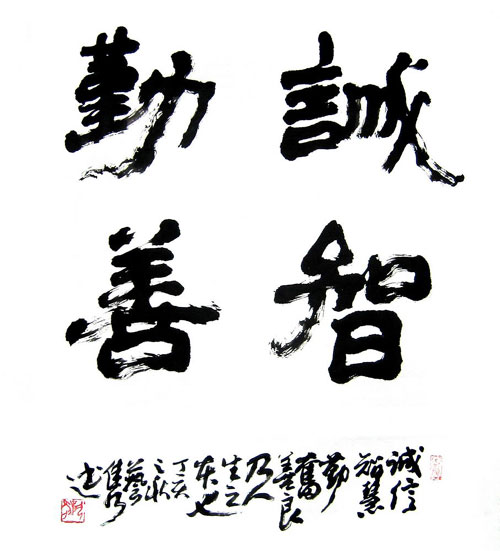 誠智
勤善
誠信
智慧
勤
奮善良
乃人
生之
本也
丁亥
之秋
藝